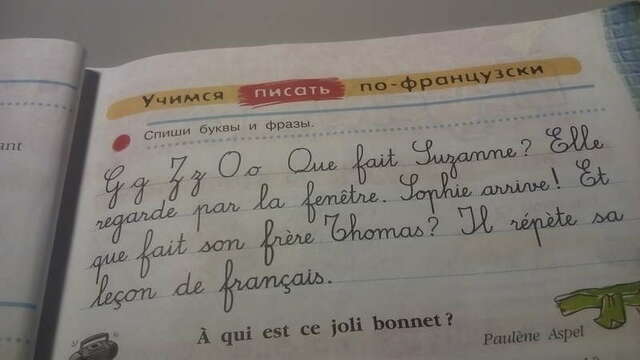 Учимся писать по-французски
Спиши буквы и фразы.
ant
G g Z z O o Que fait Suzanne? Elle
regarde par la fenêtre. Sophie arrive! Et
que fait son frère Thomas? Il répète sa
leçon de français.
À qui est ce joli bonnet?
Paulène Aspel